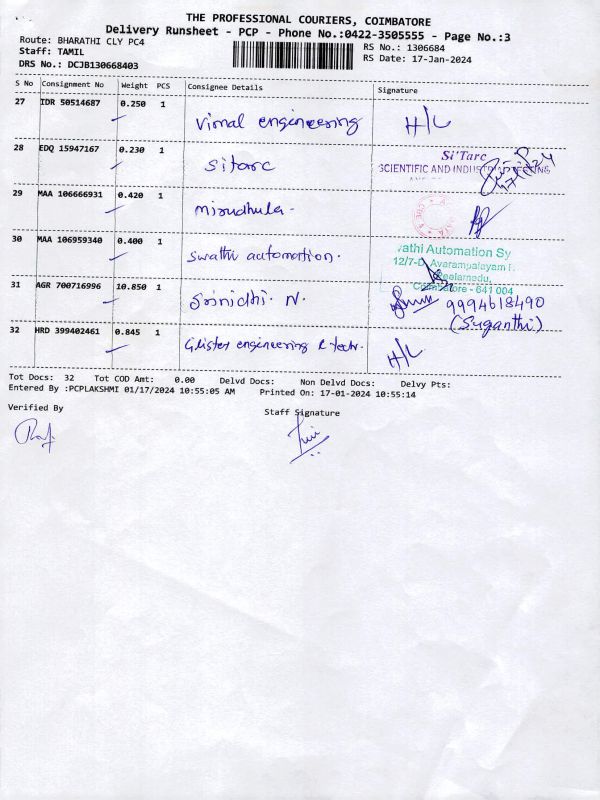 THE PROFESSIONAL COURIERS, COIMBATORE
Delivery Runsheet - PCP - Phone No.:0422-3505555 - Page No.:3
Route: BHARATHI CLY PC4 RS No.: 1306684
Staff: TAMIL RS Date: 17-Jan-2024
DRS No.: DCJB130668403
S No Consignment No Weight PCS Consignee Details Signature
27 IDR 50514687 0.250 1 Vimal engineering H/L
28 EDQ 15947167 0.230 1 Sitarc Si'Tarc
SCIENTIFIC AND
29 MAA 106666931 0.420 1 mirudhula.
30 MAA 106959340 0.400 1 swathi automation. wathi Automation Sy
12/7-D, Avarampalayam
Peelamedu,
Coimbatore - 641 004
31 AGR 700716996 10.850 1 Srinidhi. N. 9994618490
(Suganthi)
32 HRD 399402461 0.845 1 Glister engineering & tech. H/L
Tot Docs: 32 Tot COD Amt: 0.00 Delvd Docs: Non Delvd Docs: Delvy Pts:
Entered By :PCPLAKSHMI 01/17/2024 10:55:05 AM Printed On: 17-01-2024 10:55:14
Verified By Staff Signature